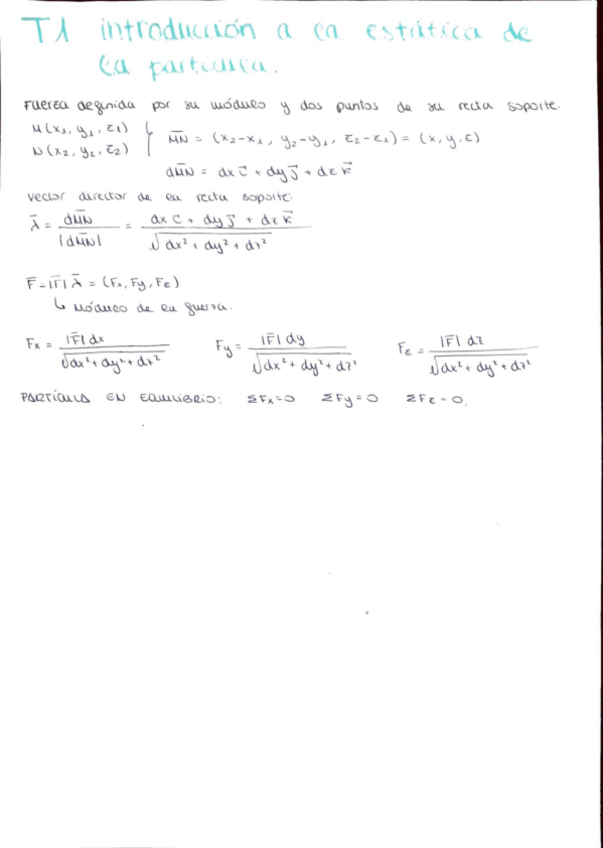 T1 introducción a la estática de
la partícula.
Fuerza definida por su módulo y dos puntos de su recta soporte.
M(x₁, y₁, z₁)
N(x₂, y₂, z₂)
M̅N̅ = (x₂-x₁, y₂-y₁, z₂-z₁) = (x, y, z)
dM̅N̅ = dx i⃗ + dy j⃗ + dz k⃗
Vector director de la recta soporte:
λ̅ = dM̅N̅ / |dM̅N̅| = (dx i⃗ + dy j⃗ + dz k⃗) / √(dx² + dy² + dz²)
F̅ = |F̅| λ̅ = (Fx, Fy, Fz)
↳ Módulo de la fuerza.
Fx = |F̅| dx / √(dx² + dy² + dz²) Fy = |F̅| dy / √(dx² + dy² + dz²) Fz = |F̅| dz / √(dx² + dy² + dz²)
PARTÍCULA EN EQUILIBRIO: ΣFx=0 ΣFy=0 ΣFz=0.